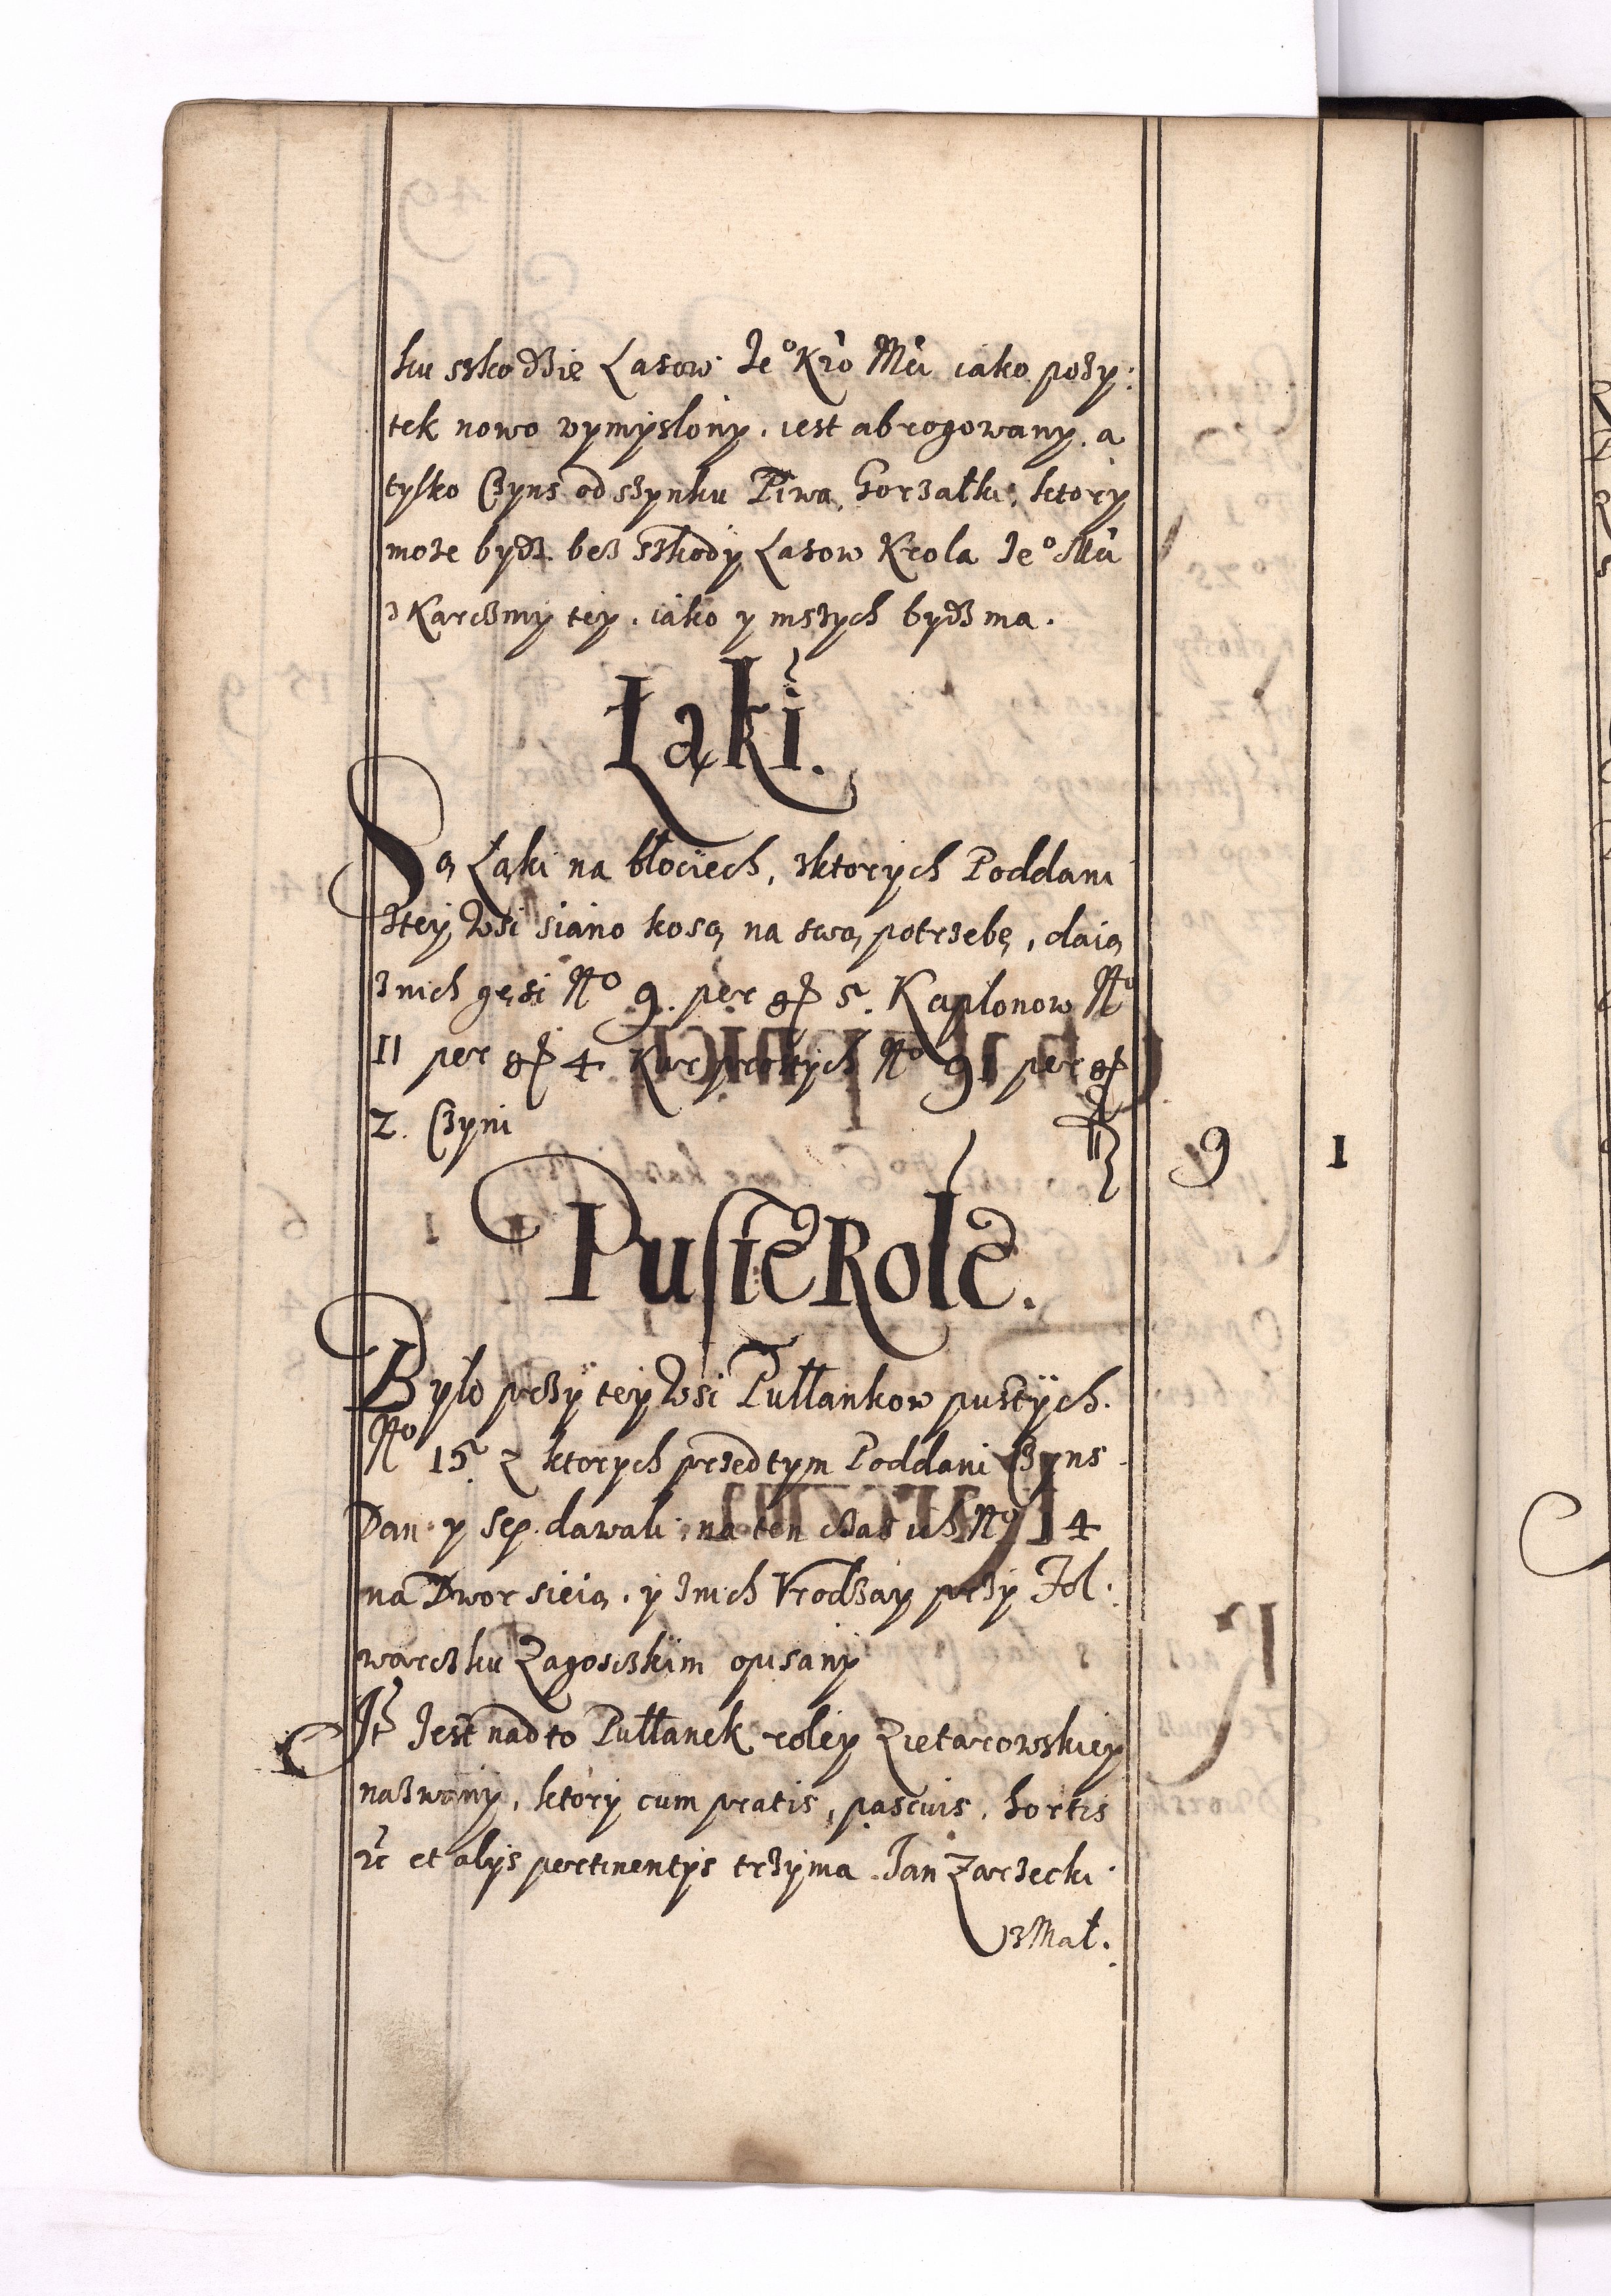 ku szkodzie Lasow Je° Kro Mci iako pozy:
tek nowo wymyslony, iest abrogowany, a
tylko Czyns od szynku Piwa, Gorzałki, ktory
może bydz bez szkody Lasow Krola Je° Mci
z Karczmy tey, iako y inszych bydz ma.
Łąki.
Są Łąki na błociech, z ktorych Poddani
z tey Wsi siano koszą na swą potrzebę, daią
z nich gęsi No 9. per gr 5. Kapłonow No
11 per gr 4 Kur prostych No 91 per gr
2. Czyni f 9 1
Puste Role.
Było przy tey Wsi Pułłankow pustych.
No 15. z ktorych przedtym Poddani Czyns
Dan y sep dawali, na ten czas ich No 14
na Dwor sieią, y z nich Vrodzay przy Fol:
warczku Zagosczkim opisany
Jt Jest nadto Pułłanek roley Zietarowskiey
nazwany, ktory cum pratis, pascuis, hortis
etc et alys pertinentys trzyma Jan Zarzecki
z Mał.